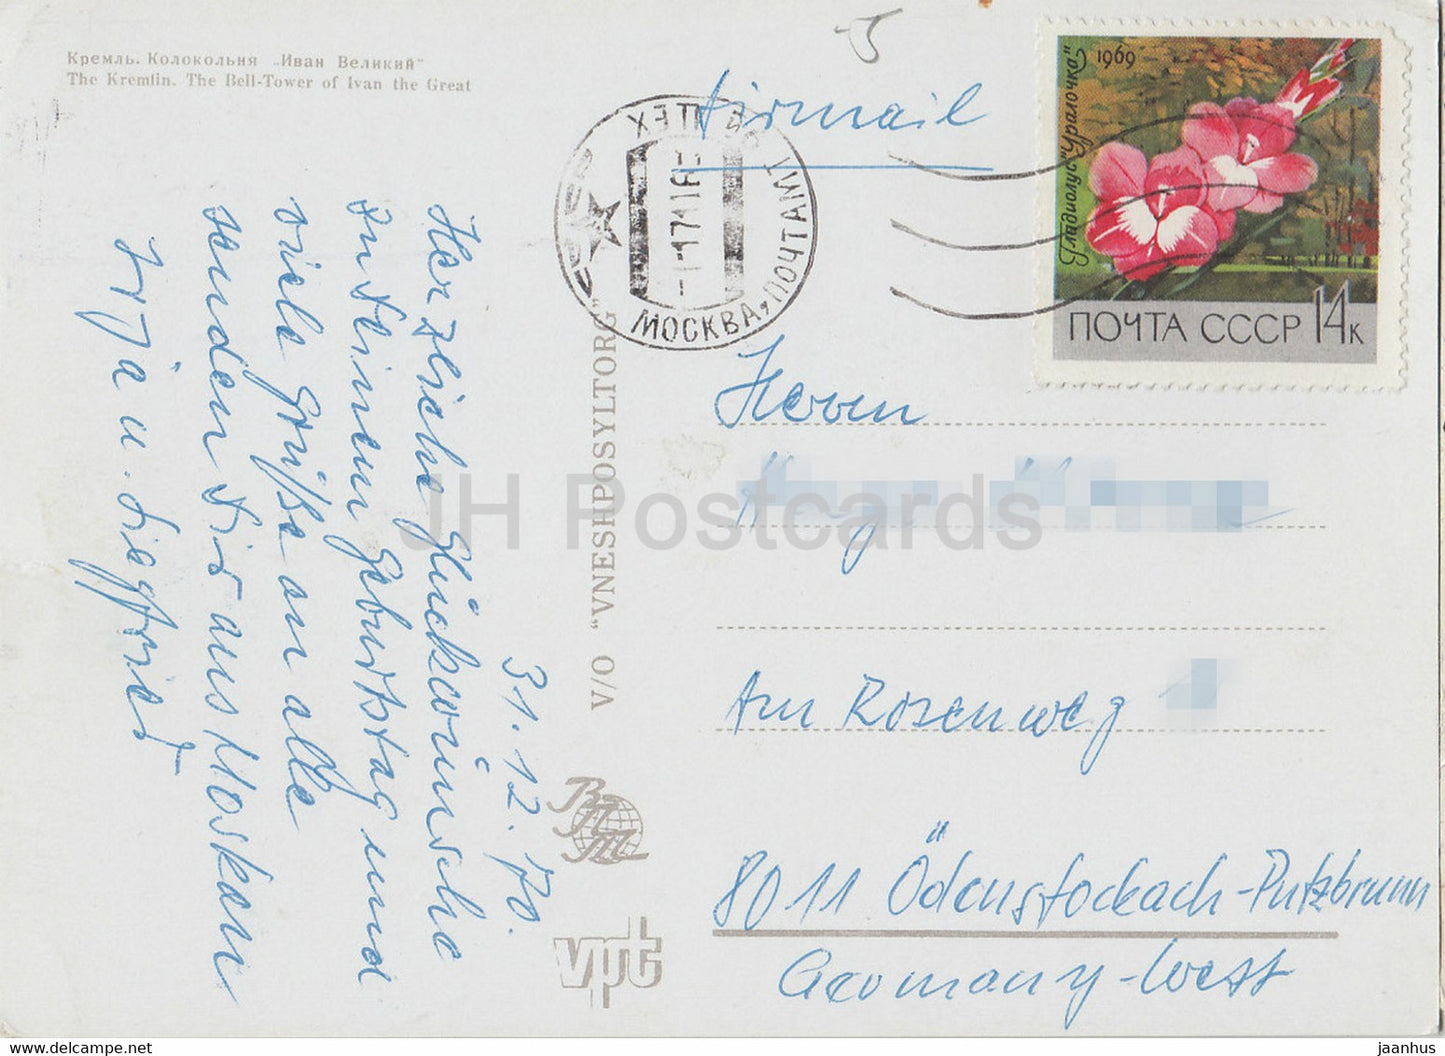 Кремль. Колокольня „Иван Великий“
The Kremlin. The Bell-Tower of Ivan the Great
Airmail
Гладиолус "Уралочка"
1969
ПОЧТА СССР 14к
МОСКВА, ПОЧТАМТ
31.12.70.
Herzliche Glückwünsche
zu Deinem Geburtstag und
viele Grüße an alle
senden Dir aus Moskau
u. Siegfried
V/O "VNESHPOSYLTORG"
ВПТ
vpt
Herrn
Am Rosenweg
8011 Ödenstockach-Putzbrunn
Germany-West
JH Postcards
https://www.delcampe.net
jaanhus